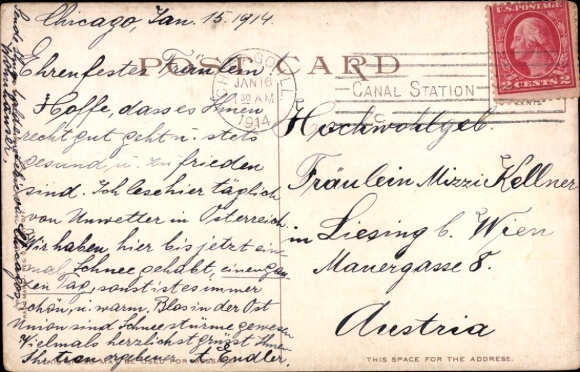 Chicago, Jan. 15. 1914.
POST CARD
Ehrenfester Fräulein.
Hoffe, dass es Ihnen
recht gut geht u. stets
gesund, u. zu frieden
sind. Ich lese hier täglich
von Unwetter in Österreich
Wir haben hier bis jetzt ein
mal Schnee gehabt, einen gan
zen Tag, sonst ist es immer
schön, u. warm. Blos in der Ost
Union sind Schneestürme gewesen
Vielmals herzlichst grüsst Ihnen
Ihr treu ergebener A. Endler.
CHICAGO, ILL.
JAN 16
30 AM
1914
CANAL STATION
U.S. POSTAGE
2 CENTS 2
Hochwohlgeb.
Fräulein Mizzi Kellner
in Liesing b. Wien
Mauergasse 8.
Austria
THIS SPACE FOR THE ADDRESS.